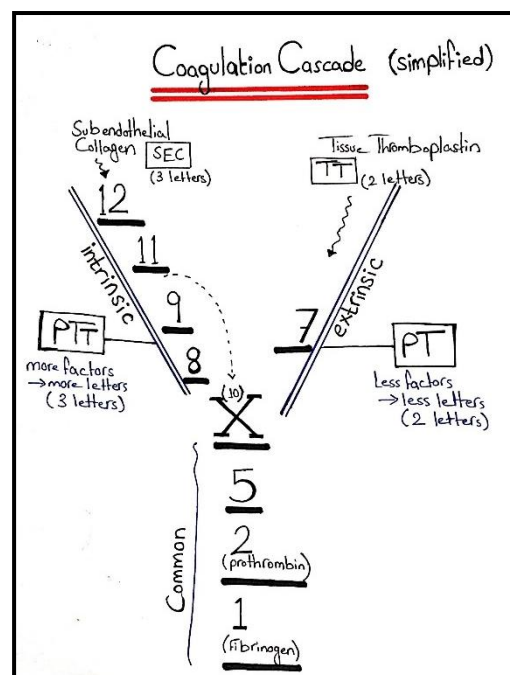 Coagulation Cascade (simplified)
Subendothelial
Collagen SEC
(3 letters)
Tissue Thromboplastin
TT (2 letters)
12
11
9
8
intrinsic
PTT
more factors
→more letters
(3 letters)
7
extrinsic
PT
Less factors
→ less letters
(2 letters)
(10)
X
5
2
(prothrombin)
1
(Fibrinogen)
Common